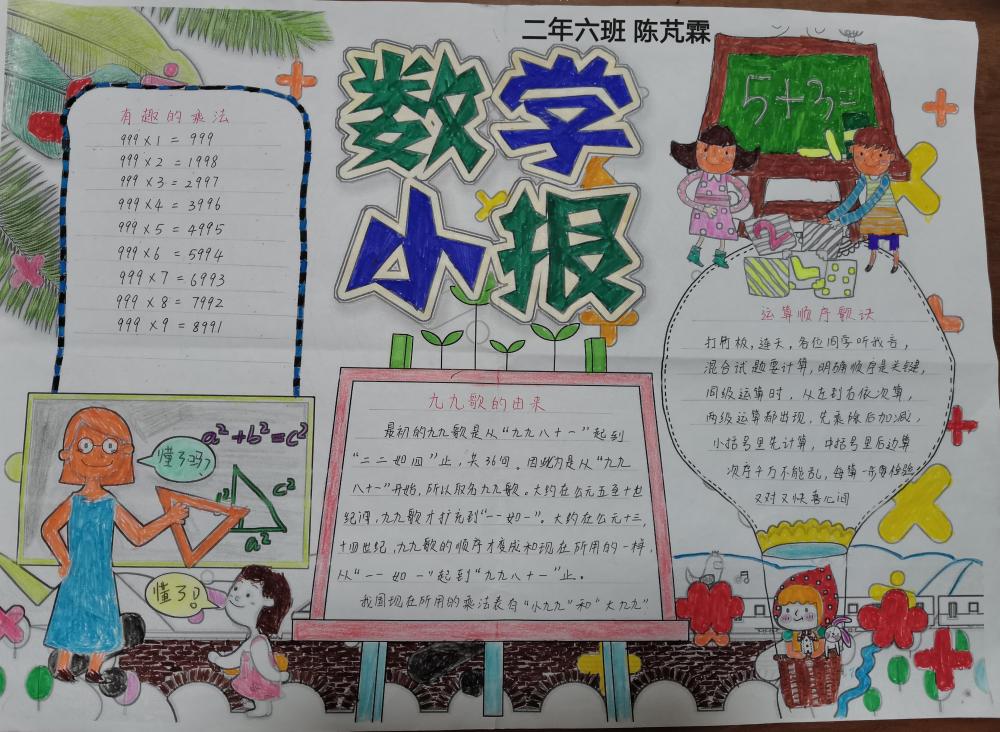 二年六班 陈芃霖
数学
小报
有趣的乘法
999×1 = 999
999×2 = 1998
999×3 = 2997
999×4 = 3996
999×5 = 4995
999×6 = 5994
999×7 = 6993
999×8 = 7992
999×9 = 8991
5+3=
2
运算顺序歌诀
打竹板,连天,各位同学听我言,
混合试题要计算,明确顺序是关键,
同级运算时,从左到右依次算,
两级运算都出现,先乘除后加减,
小括号里先计算,中括号里后边算
次序千万不能乱,每算一步要检验
又对又快喜心间
九九歌的由来
最初的九九歌是从“九九八十一”起到
“二二如四”止,共36句。因此为是从“九九
八十一”开始,所以取名九九歌。大约在公元五至十世
纪间,九九歌才扩充到“一一如一”。大约在公元十三,
十四世纪,九九歌的顺序才变成和现在所用的一样,
从“一一如一”起到“九九八十一”止。
我国现在所用的乘法表有“小九九”和“大九九”
a²+b²=c²
懂了吗?
c²
a²
懂了!